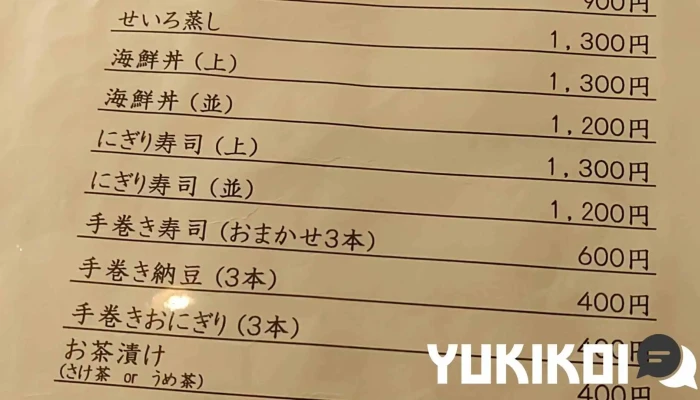 900円
せいろ蒸し 1,300円
海鮮丼(上) 1,300円
海鮮丼(並) 1,200円
にぎり寿司(上) 1,300円
にぎり寿司(並) 1,200円
手巻き寿司(おまかせ3本) 600円
手巻き納豆(3本) 400円
手巻きおにぎり(3本)
お茶漬け 400円
(さけ茶 or うめ茶)
YUKIKOI